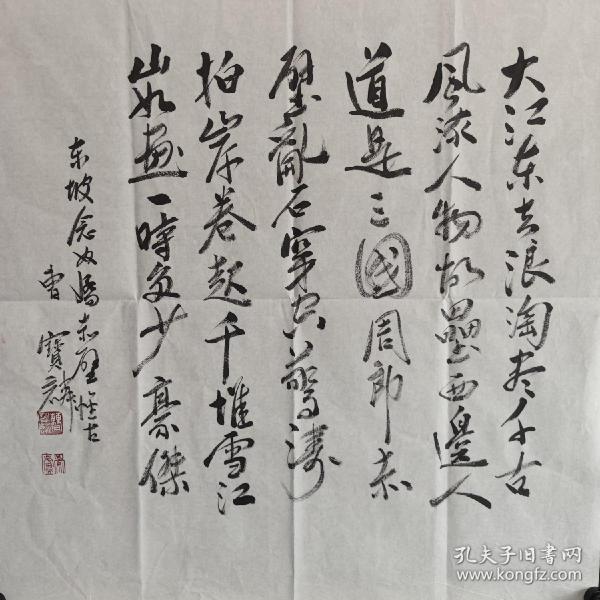 大江东去浪淘尽千古
风流人物故壘西邊人
道是三國周郎赤
壁亂石穿空驚濤
拍岸卷起千堆雪江
山如畫一時多少豪傑
东坡念奴嬌赤壁懷古
曹寶麟
孔夫子旧书网
www.kongfz.com